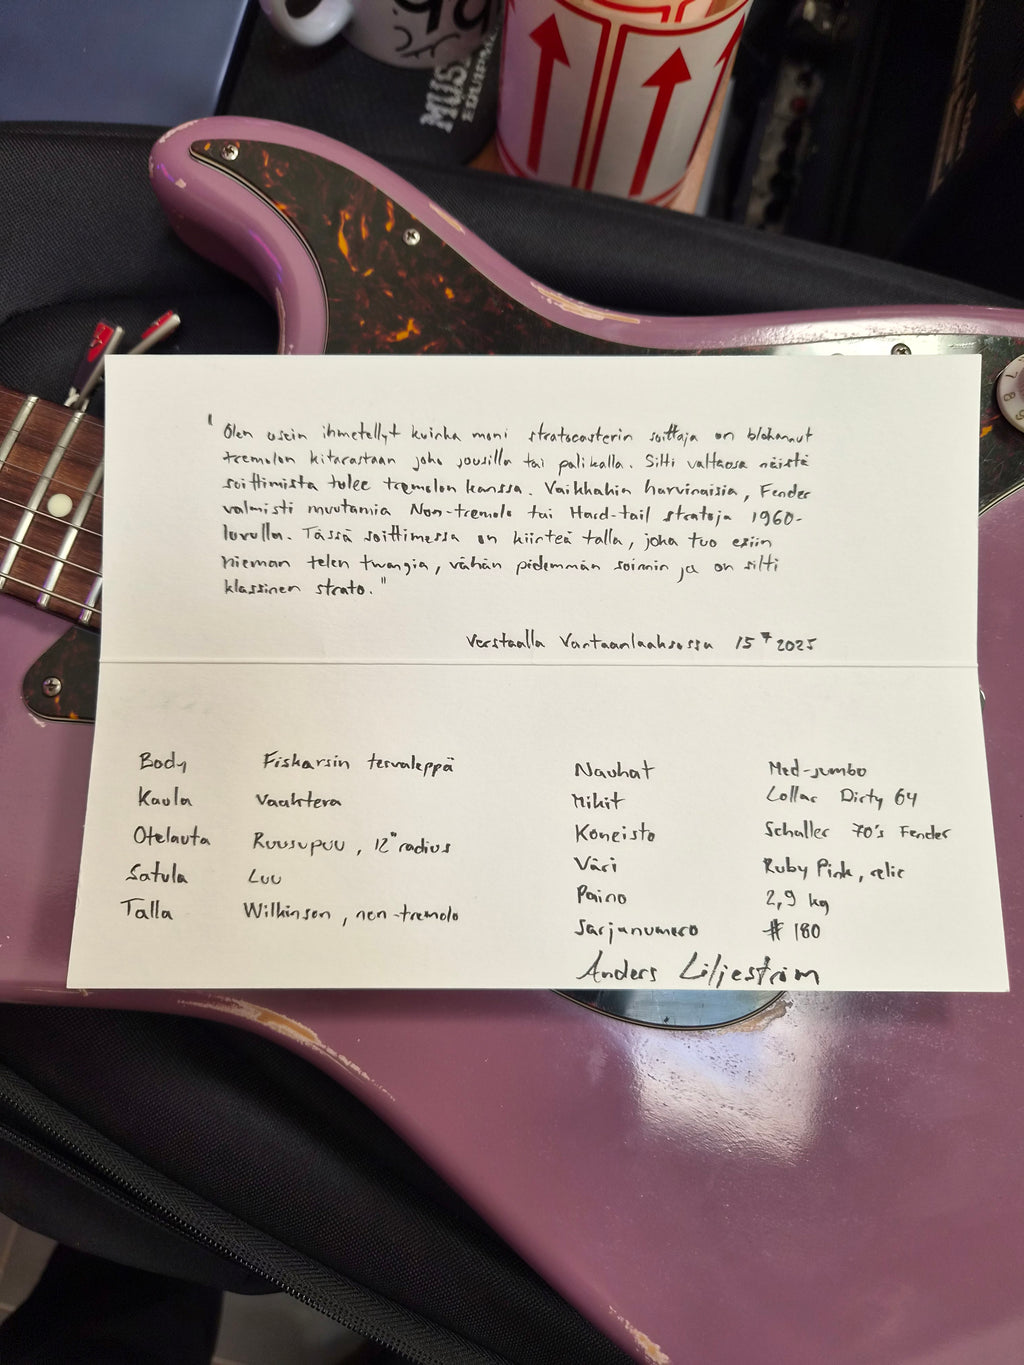 MUSI
EQUIPME
" Olen usein ihmetellyt kuinka moni stratocasterin soittaja on blokannut
tremolon kitarastaan joko jousilla tai palikalla. Silti valtaosa näistä
soittimista tulee tremolon kanssa. Vaikkakin harvinaisia, Fender
valmisti muutamia Non-tremolo tai Hard-tail stratoja 1960-
luvulla. Tässä soittimessa on kiinteä talla, joka tuo esiin
hieman telen twangia, vähän pidemmän soinnin ja on silti
klassinen strato."
Verstaalla Vantaanlaaksossa 15 7 2025
Body Fiskarsin tervaleppä
Kaula Vaahtera
Otelauta Ruusupuu, 12" radius
Satula Luu
Talla Wilkinson, non-tremolo
Nauhat Med-jumbo
Mikit Lollar Dirty 64
Koneisto Schaller 70's Fender
Väri Ruby Pink, relic
Paino 2,9 kg
Sarjanumero # 180
Anders Liljeström